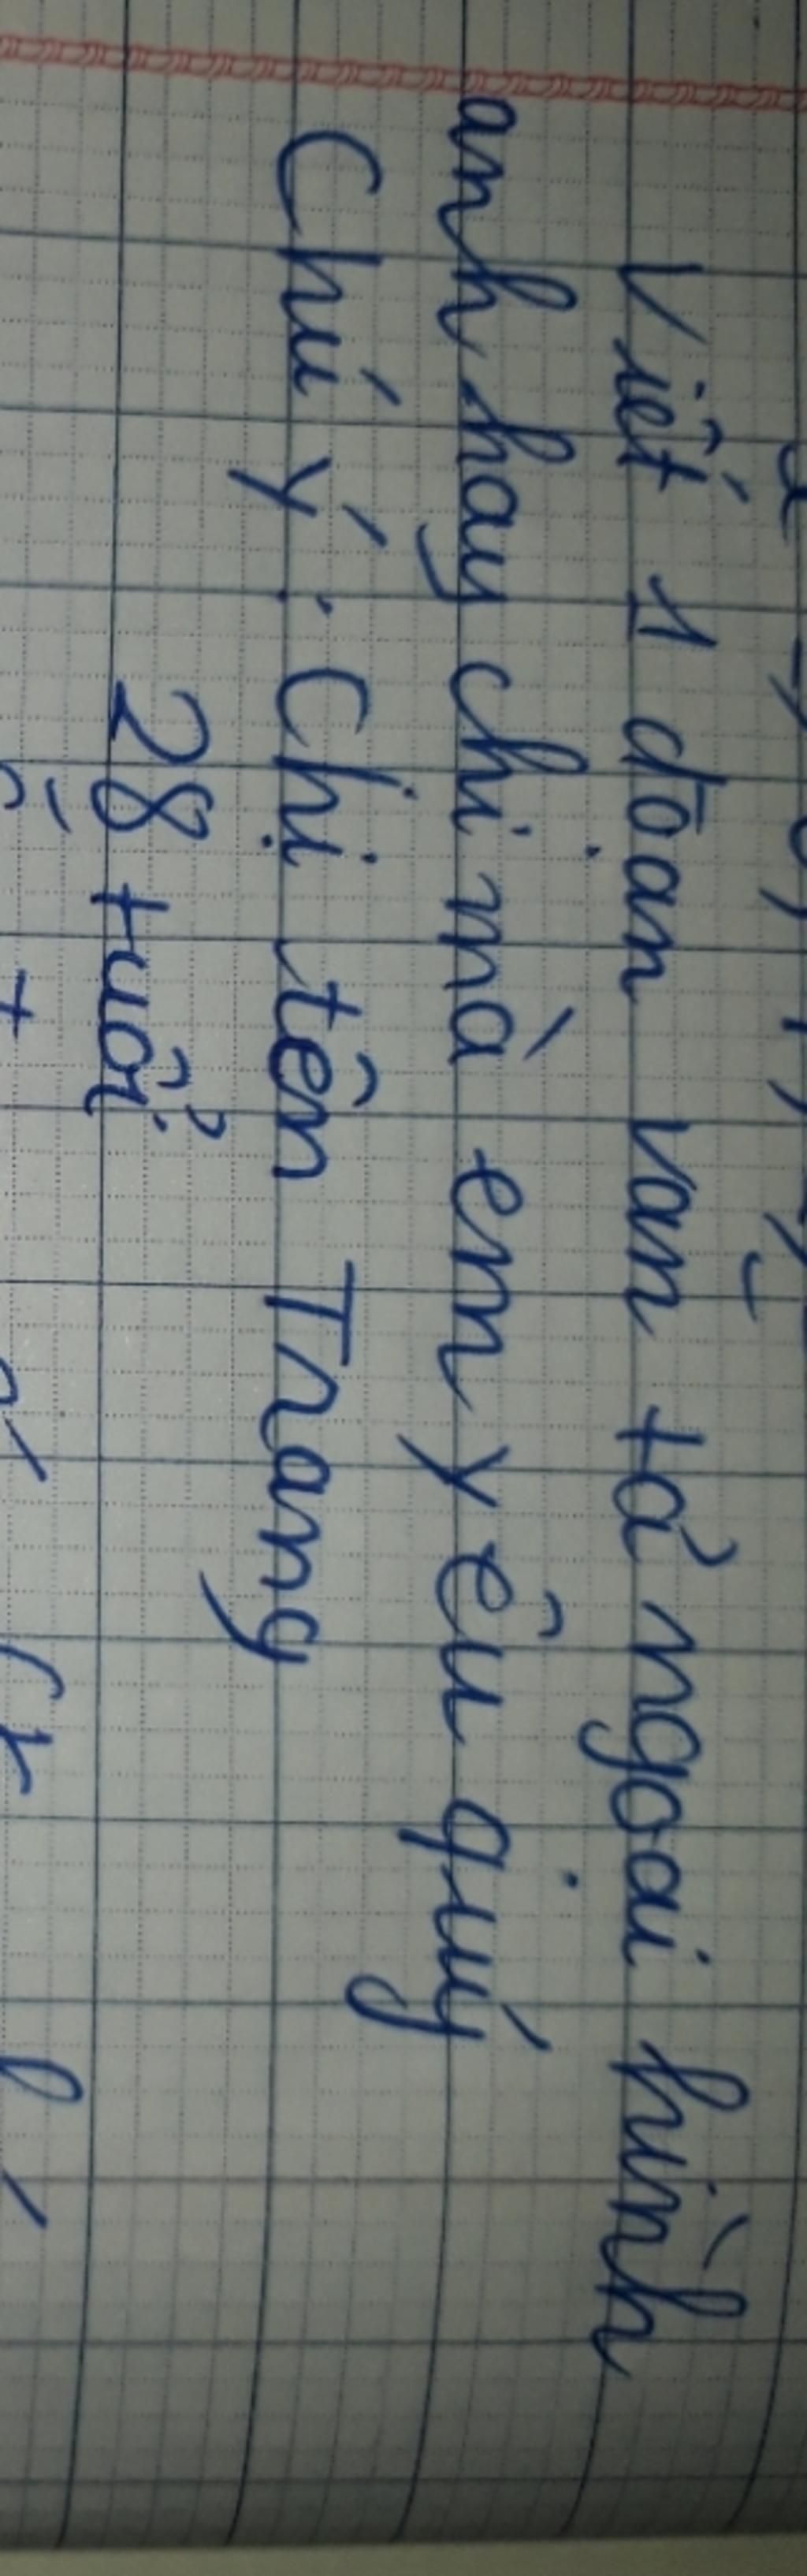 Viết 1 đoạn van tả ngoại hình
anh hay chị mà em yêu quý
Chú ý : Chị tên Trang
28 tuổi